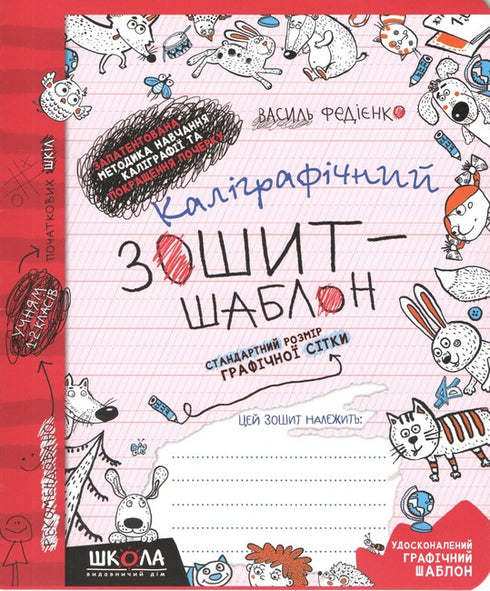 ВАСИЛЬ ФЕДІЄНКО
ЗАПАТЕНТОВАНА
МЕТОДИКА НАВЧАННЯ
КАЛІГРАФІЇ ТА
ПОКРАЩЕННЯ ПОЧЕРКУ
Каліграфічний
ЗОШИТ-
ШАБЛОН
СТАНДАРТНИЙ РОЗМІР
ГРАФІЧНОЇ СІТКИ
РЕКОМЕНДОВАНО
УЧНЯМ
1-2 КЛАСІВ
ПОЧАТКОВИХ ШКІЛ
ЦЕЙ ЗОШИТ НАЛЕЖИТЬ:
ШКОЛА
видавничий дім
УДОСКОНАЛЕНИЙ
ГРАФІЧНИЙ
ШАБЛОН